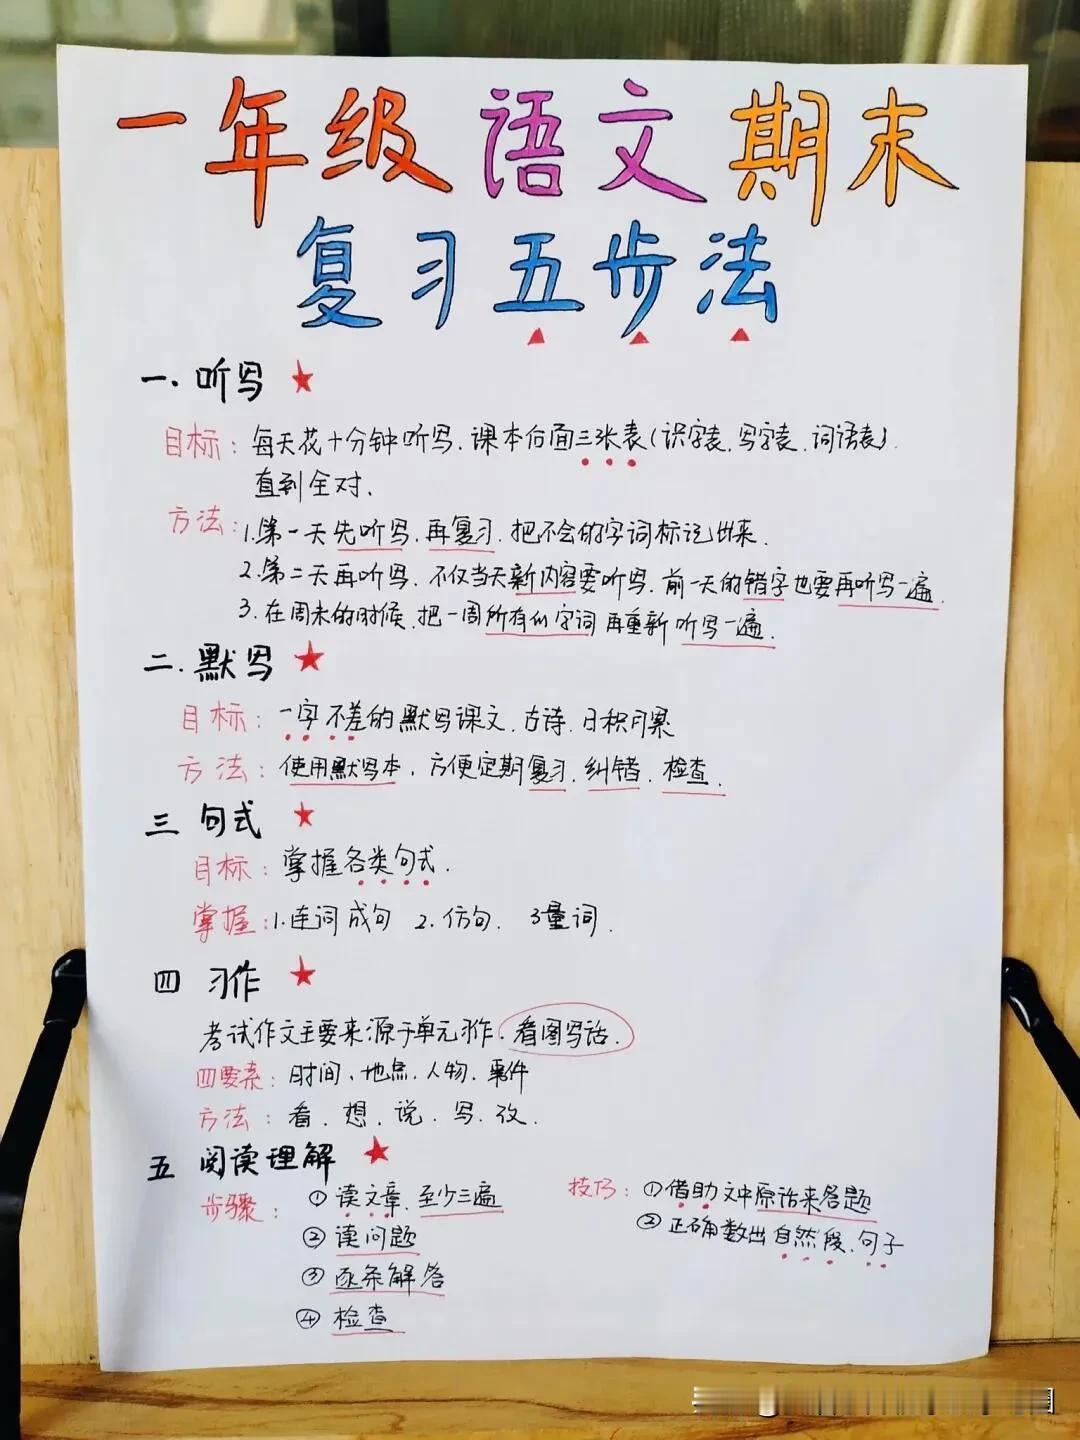 一年级语文期末
复习五步法
一.听写
目标:每天花十分钟听写.课本后面三张表(识字表.写字表.词语表).
直到全对.
方法:1.第一天先听写.再复习.把不会的字词标记出来.
2.第二天再听写.不仅当天新内容要听写.前一天的错字也要再听写一遍.
3.在周末的时候.把一周所有的字词再重新听写一遍.
二.默写
目标:一字不差的默写课文.古诗.日积月累
方法:使用默写本,方便定期复习.纠错.检查.
三 句式
目标:掌握各类句式.
掌握:1.连词成句 2.仿句. 3量词.
四 习作
考试作文主要来源于单元习作.看图写话.
四要素:时间、地点.人物.事件
方法:看.想.说.写.改.
五 阅读理解
步骤:①读文章.至少三遍
②读问题
③逐条解答
④检查
技巧:①借助文中原话来答题
②正确数出自然段.句子